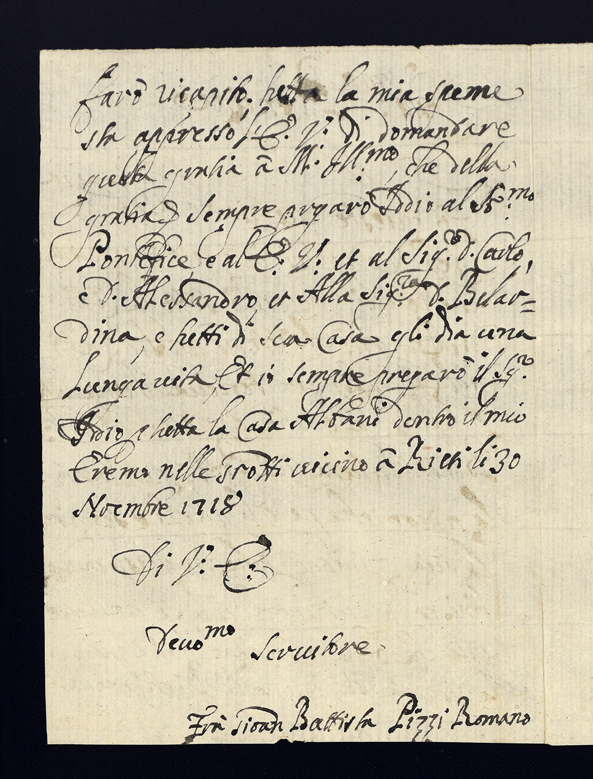 farò ricapito, tutta la mia speme
sta appresso l'E: V: di domandare
questa gratia à M: Ill:mo, che della
gratia sempre pregarò Iddio al S:mo
Pontefice e al E: V: et al Sig:re D. Carlo,
e D. Alessandro, et Alla Sig:ra D. Belar=
dina, e tutti di sua Casa gli dia una
Lunga vita, Et io sempre pregarò il Sig:r
Iddio, e tutta la Casa Albani dentro il mio
Eremo nelle grotti vicino à Rieti li 30
Novembre 1718
Di V: E:
Devo:mo Servitore
Frà Gioan Battista Pizzi Romano